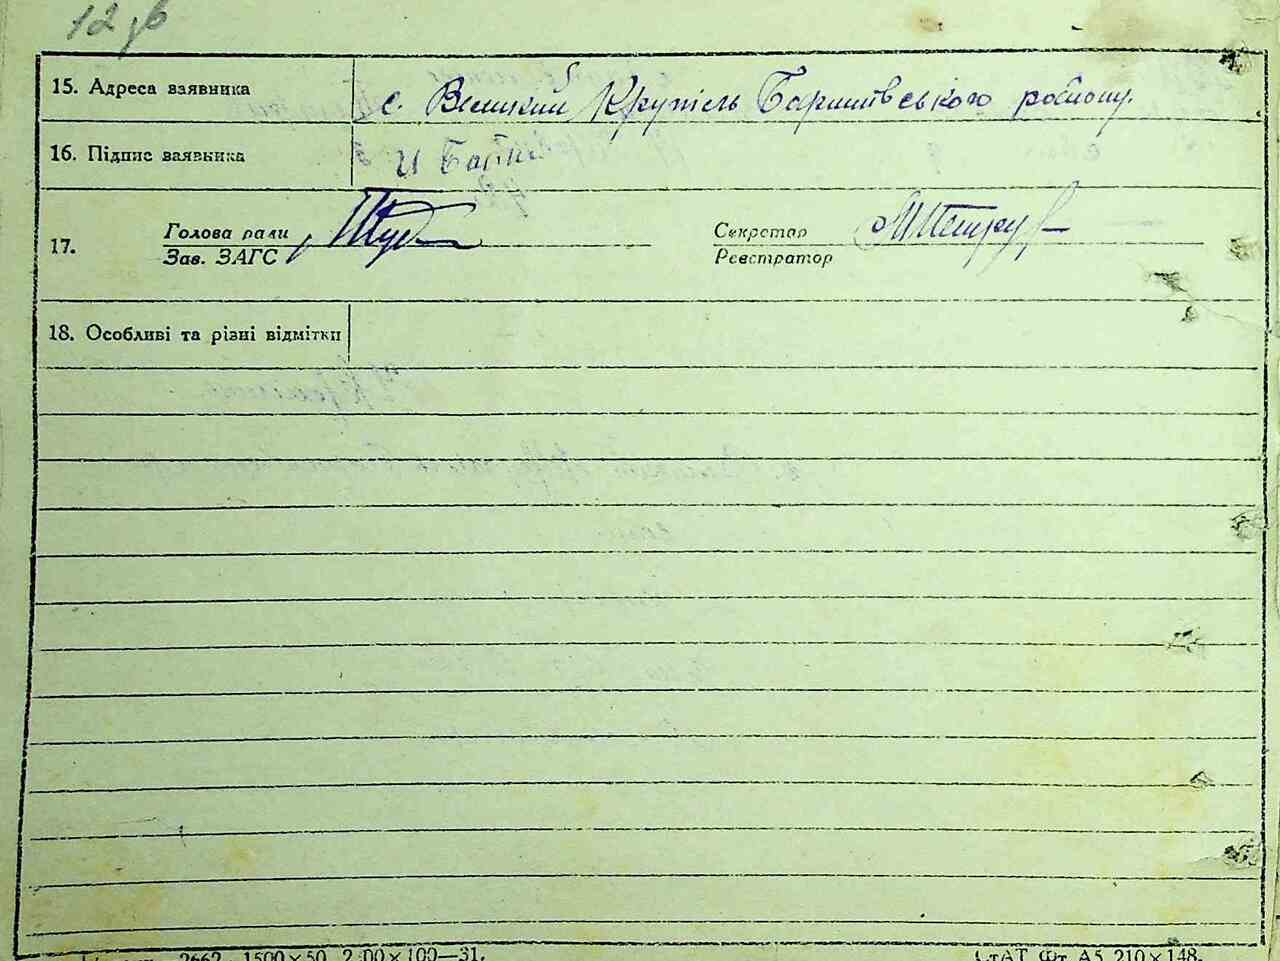 12 зв
15. Адреса заявника с. Великий Крупіль Баришівського району.
16. Підпис заявника И
17. Голова ради
Зав. ЗАГС
Секретар
Реєстратор
18. Особливі та різні відмітки
2662 1500×50 2 00×100—31.
СтАТ Фт А5 210×148.